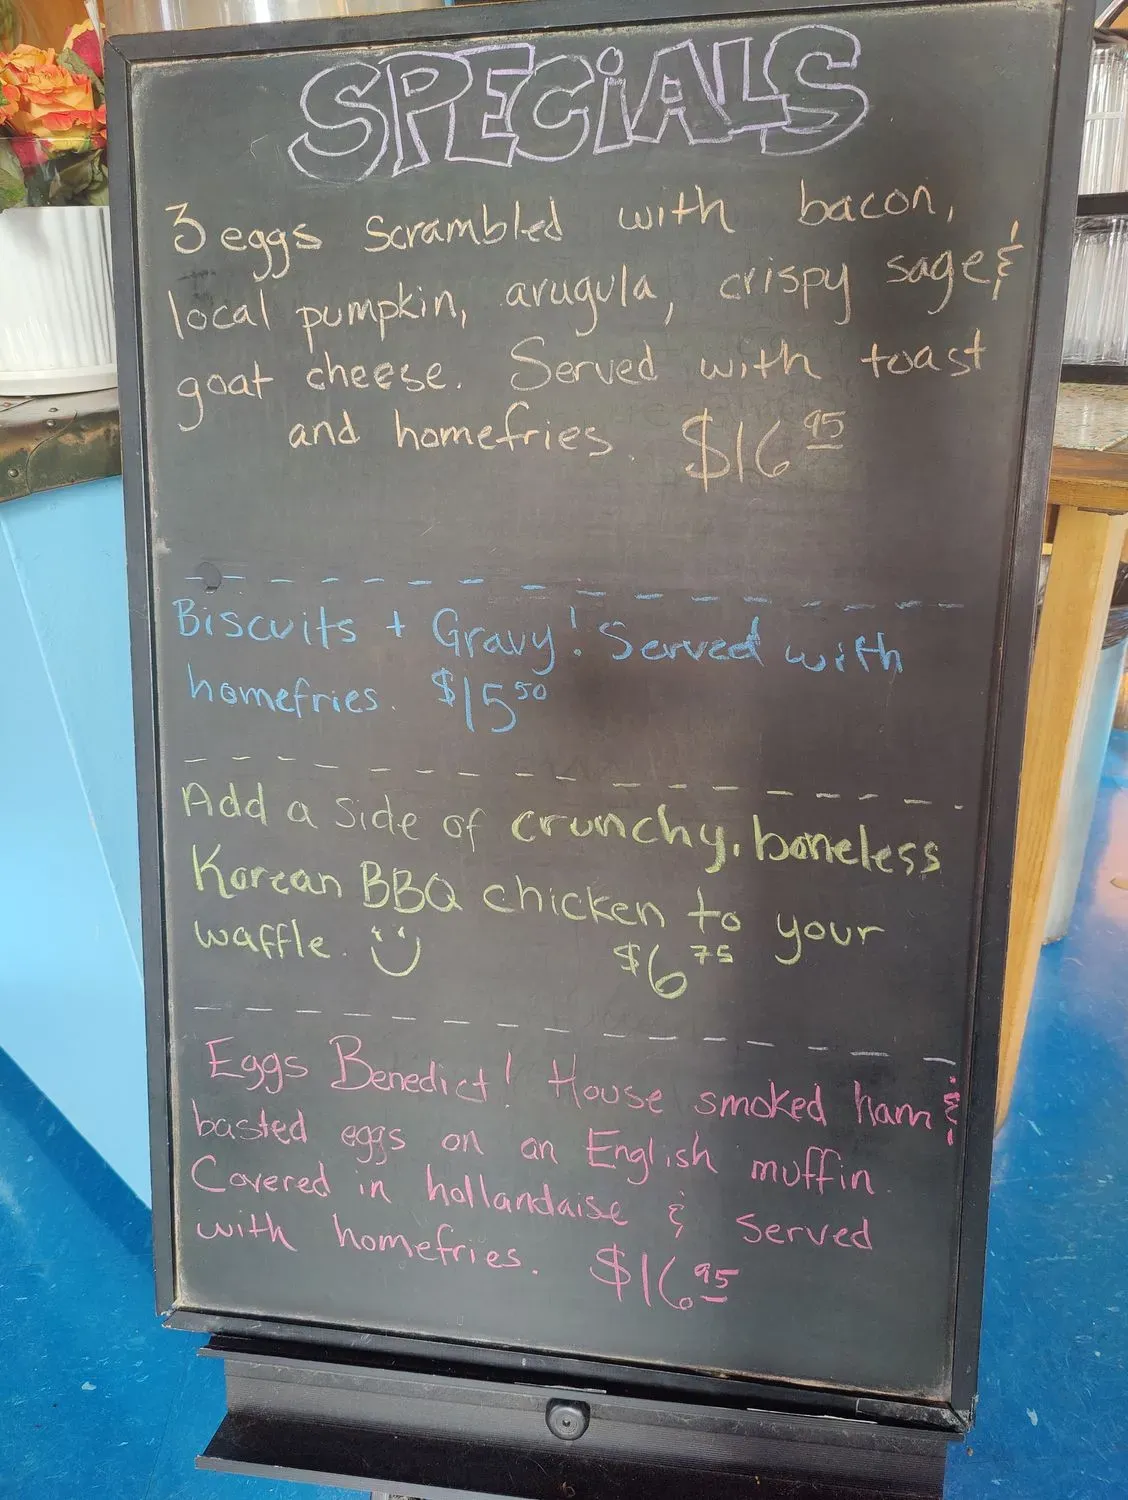 SPECiALS
3 eggs scrambled with bacon,
local pumpkin, arugula, crispy sage &
goat cheese. Served with toast
and homefries. $16 95
Biscuits + Gravy! Served with
homefries. $15 50
Add a side of crunchy, boneless
Korean BBQ chicken to your
waffle. $6 75
Eggs Benedict! House smoked ham &
basted eggs on an English muffin.
Covered in hollandaise & served
with homefries. $16.95